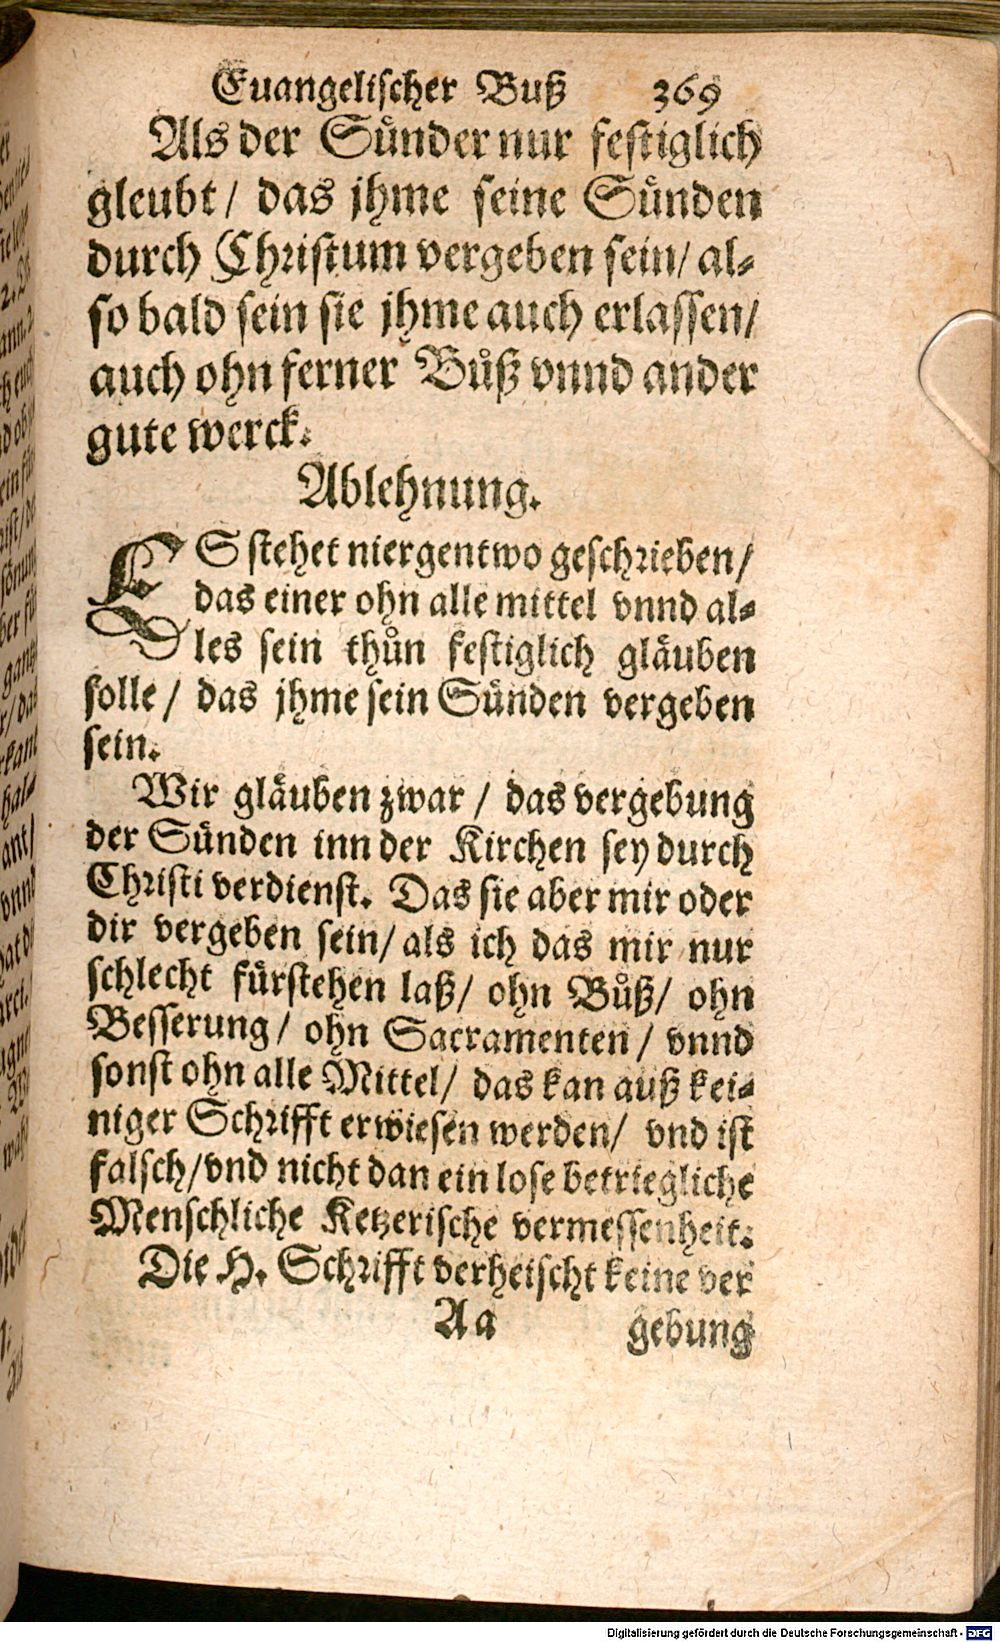 Euangelischer Buß 369
Als der Sünder nur festiglich
gleubt / das jhme seine Sünden
durch Christum vergeben sein / al⸗
so bald sein sie jhme auch erlassen /
auch ohn ferner Bůß vnnd ander
gute werck.
Ablehnung.
ES stehet niergentwo geschrieben /
das einer ohn alle mittel vnnd al⸗
les sein thůn festiglich gläuben
solle / das jhme sein Sünden vergeben
sein.
Wir gläuben zwar / das vergebung
der Sünden inn der Kirchen sey durch
Christi verdienst. Das sie aber mir oder
dir vergeben sein / als ich das mir nur
schlecht fürstehen laß / ohn Bůß / ohn
Besserung / ohn Sacramenten / vnnd
sonst ohn alle Mittel / das kan auß kei⸗
niger Schrifft erwiesen werden / vnd ist
falsch / vnd nicht dan ein lose betriegliche
Menschliche Ketzerische vermessenheit.
Die H. Schrifft verheischt keine ver
Aa gebung
Digitalisierung gefördert durch die Deutsche Forschungsgemeinschaft - DFG